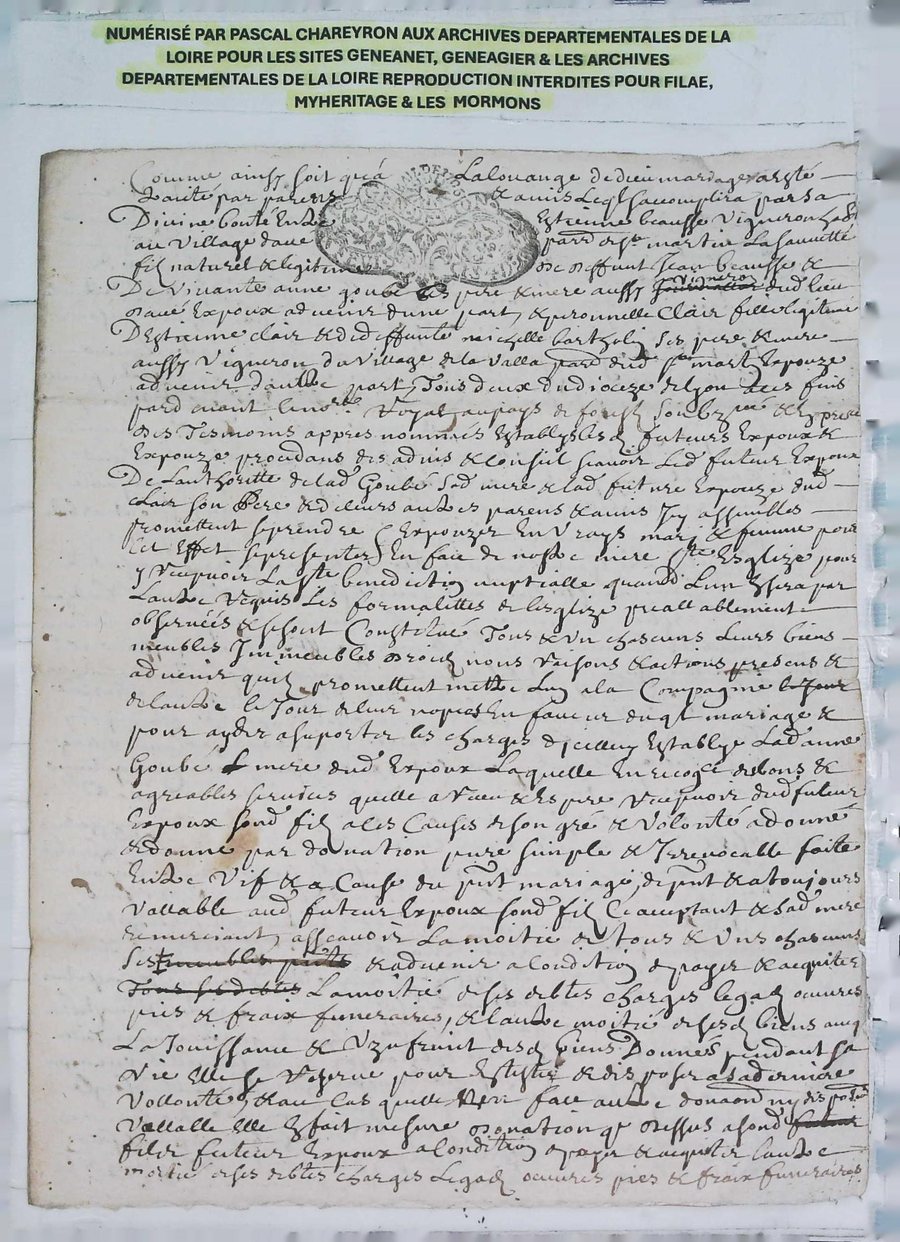 NUMÉRISÉ PAR PASCAL CHAREYRON AUX ARCHIVES DEPARTEMENTALES DE LA
LOIRE POUR LES SITES GENEANET, GENEAGIER & LES ARCHIVES
DEPARTEMENTALES DE LA LOIRE REPRODUCTION INTERDITES POUR FILAE,
MYHERITAGE & LES MORMONS
Comme ainsy soit qu'á La louange de dieu mariage aye esté
traité par parens & amis Leql saccomplira par sa
Divine bonté Entre Estienne beausse Vigneron
au village davé parr de st martin La sauveté
fils naturel & legitime de deffunt Jean beausse &
De vivante anne goubé ses pere & mere aussy vigneron dud lieu
davé Expoux advenir dune part, & peronnelle Clair fille legitime
DEstienne clair & de deffunte michelle barthelin ses pere & mere
aussy Vigneron du Village de la Valla parr dud st mart Expouze
advenir dautre part, Tous deux du dioceze de Lyon a ces fins
pard evant le nore Royal au pays de forest soubzné & En pnce
des Tesmoins appres nommés Establys lesd futeurs Expoux &
Expouze procedans des advis & Conseil scavoir Led futeur Expoux
De Lauthoritte de lad Goubé sad mere & lad future Expouze dud
clair son pere & dailleurs autres parens & amis Icy assemblés
promettent se prendre & Expouzer En vrays mary & femme pour
Cet Effet se presenter En face de nostre mere ste Esglize pour
y Recepvoir La ste benediction nuptialle quand Lun En sera par
Lautre Requis Les formalittes de lesglize preallablement
observées & se sont Constitué Tous & un chascuns Leurs biens
meubles Immeubles droicts noms raisons & actions presens &
advenir quils promettent mettre Lun a la Compagnie
de lautre le Jour de leur nopces En faveur duqt mariage &
pour ayder a suporter les charges dicelluy Establye Lad anne
Goubé mere dud Expoux Laquelle En recoge des bons &
agreables services quelle a Receu & Espere Recepvoir dud futeur
Expoux sond fils a les Causes de son gré & Volonté a donné
& donne par donation pure simple & Irrevocable faitte
Entre Vif & a Cause du pnt mariage, de pnt & a toujours
vallable aud futeur Expoux sond fils Ce acceptant & sad mere
remerciant, asscavoir La moitié de tous & uns chascuns
ses meubles pnts & advenir a Condition de payer & acquiter
Tous ses debtes La moitié de ses debtes charges legats oeuvres
pies & fraix funeraires, & lautre moitié de sesd biens avec
La Jouissance & Uzufruit desd biens Donnés pendant sa
vie Elle se Reserve pour En tester & disposer a sa derniere
vollonté, & au Cas quelle nen face autre donaon ny disposion
vallable Elle En fait mesme donation que dessus a sond futeur
fils futeur Expoux a Condition de payer & acquiter lautre
moitié de ses debtes charges Legats oeuvres pies & fraix funeraires